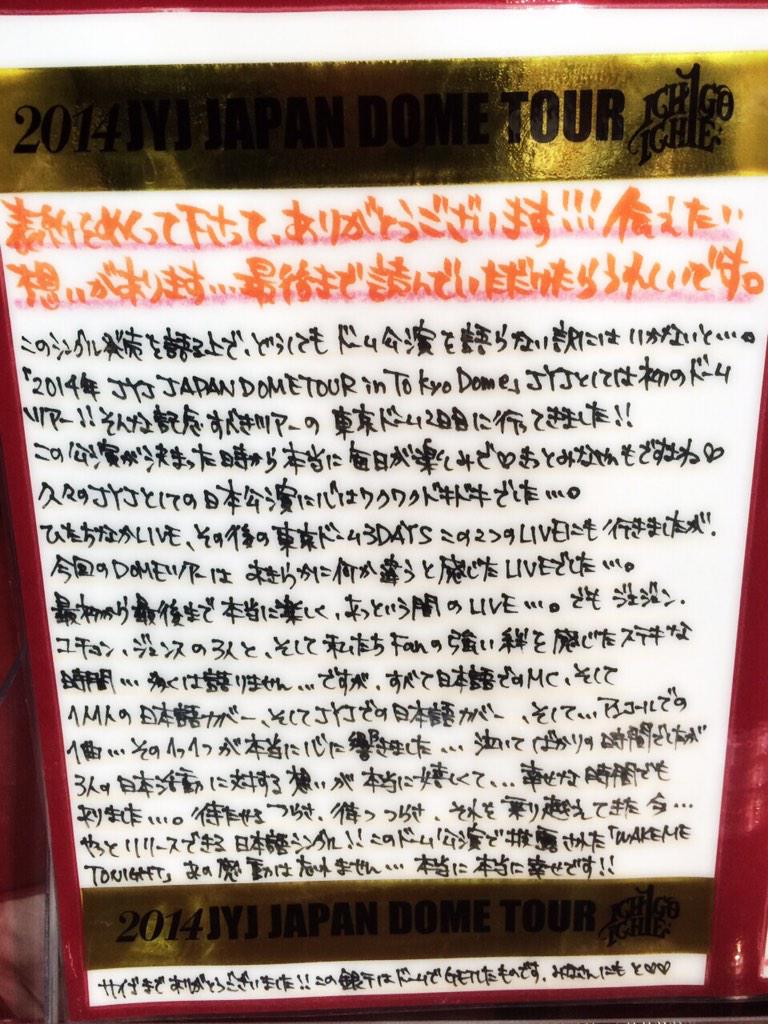 2014 JYJ JAPAN DOME TOUR ICHIGO ICHIE
表紙をめくって下さって、ありがとうございます!!! 伝えたい
想いがあります…最後まで読んでいただけたらうれしいです。
このシングル発売を語る上で、どうしてもドーム公演を語らない訳にはいかないと…。
「2014年 JYJ JAPAN DOME TOUR in Tokyo Dome」JYJとしては初のドーム
ツアー!! そんな記念すべきツアーの東京ドーム2日目に行ってきました!!
この公演が決まった日時から本当に毎日が楽しみで♡きっとみなさんもですよね♡
久々のJYJとしての日本公演に心はワクワクドキドキでした…。
ひたちなかLIVE、その後の東京ドーム3DAYS この2つのLIVEにも行きましたが、
今回のDOMEツアーは あきらかに何か違うと感じたLIVEでした…。
最初から最後まで本当に楽しく、あっという間のLIVE…。でも ジェジュン、
ユチョン、ジュンスの3人と、そして私たちFanの強い絆を感じたステキな
時間… 多くは語りません…ですが、すべて日本語でのMC、そして
1人1人の日本語カバー、そしてJYJでの日本語カバー、そして… アンコールでの
1曲… その1つ1つが本当に心に響きました… 泣いてばかりの時間でしたが
3人の日本活動に対する想いが本当に嬉しくて… 幸せな時間でも
ありました…。待たせるつらさ、待つつらさ、それを乗り越えてきた今…
やっとリリースできる日本語シングル!! このドーム公演で披露された「WAKE ME
TONIGHT」あの感動は忘れません… 本当に本当に幸せです!!
2014 JYJ JAPAN DOME TOUR ICHIGO ICHIE
サイゴまでありがとうございました!! この銀テはドームでGETしたものです。みなさんにもと♡♡